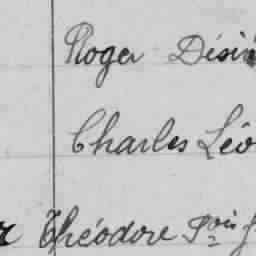 Roger Dési
Charles Léo
Théodore Fois